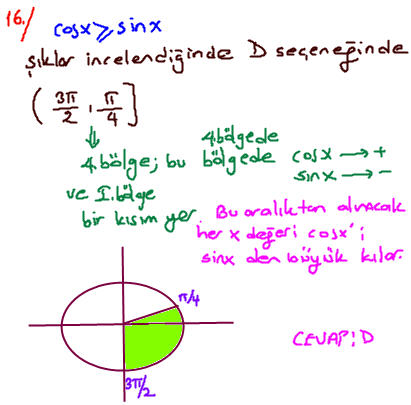 16./ cosx ≥ sinx
şıklar incelendiğinde D seçeneğinde
( 3π/2 , π/4 ]
⇓
4.bölge; bu
ve I.bölge
bir kısım yer.
4.bölgede
bölgede cosx → +
sinx → -
Bu aralıktan alınacak
her x değeri cosx'i
sinx den büyük kılar.
π/4
3π/2
CEVAP: D